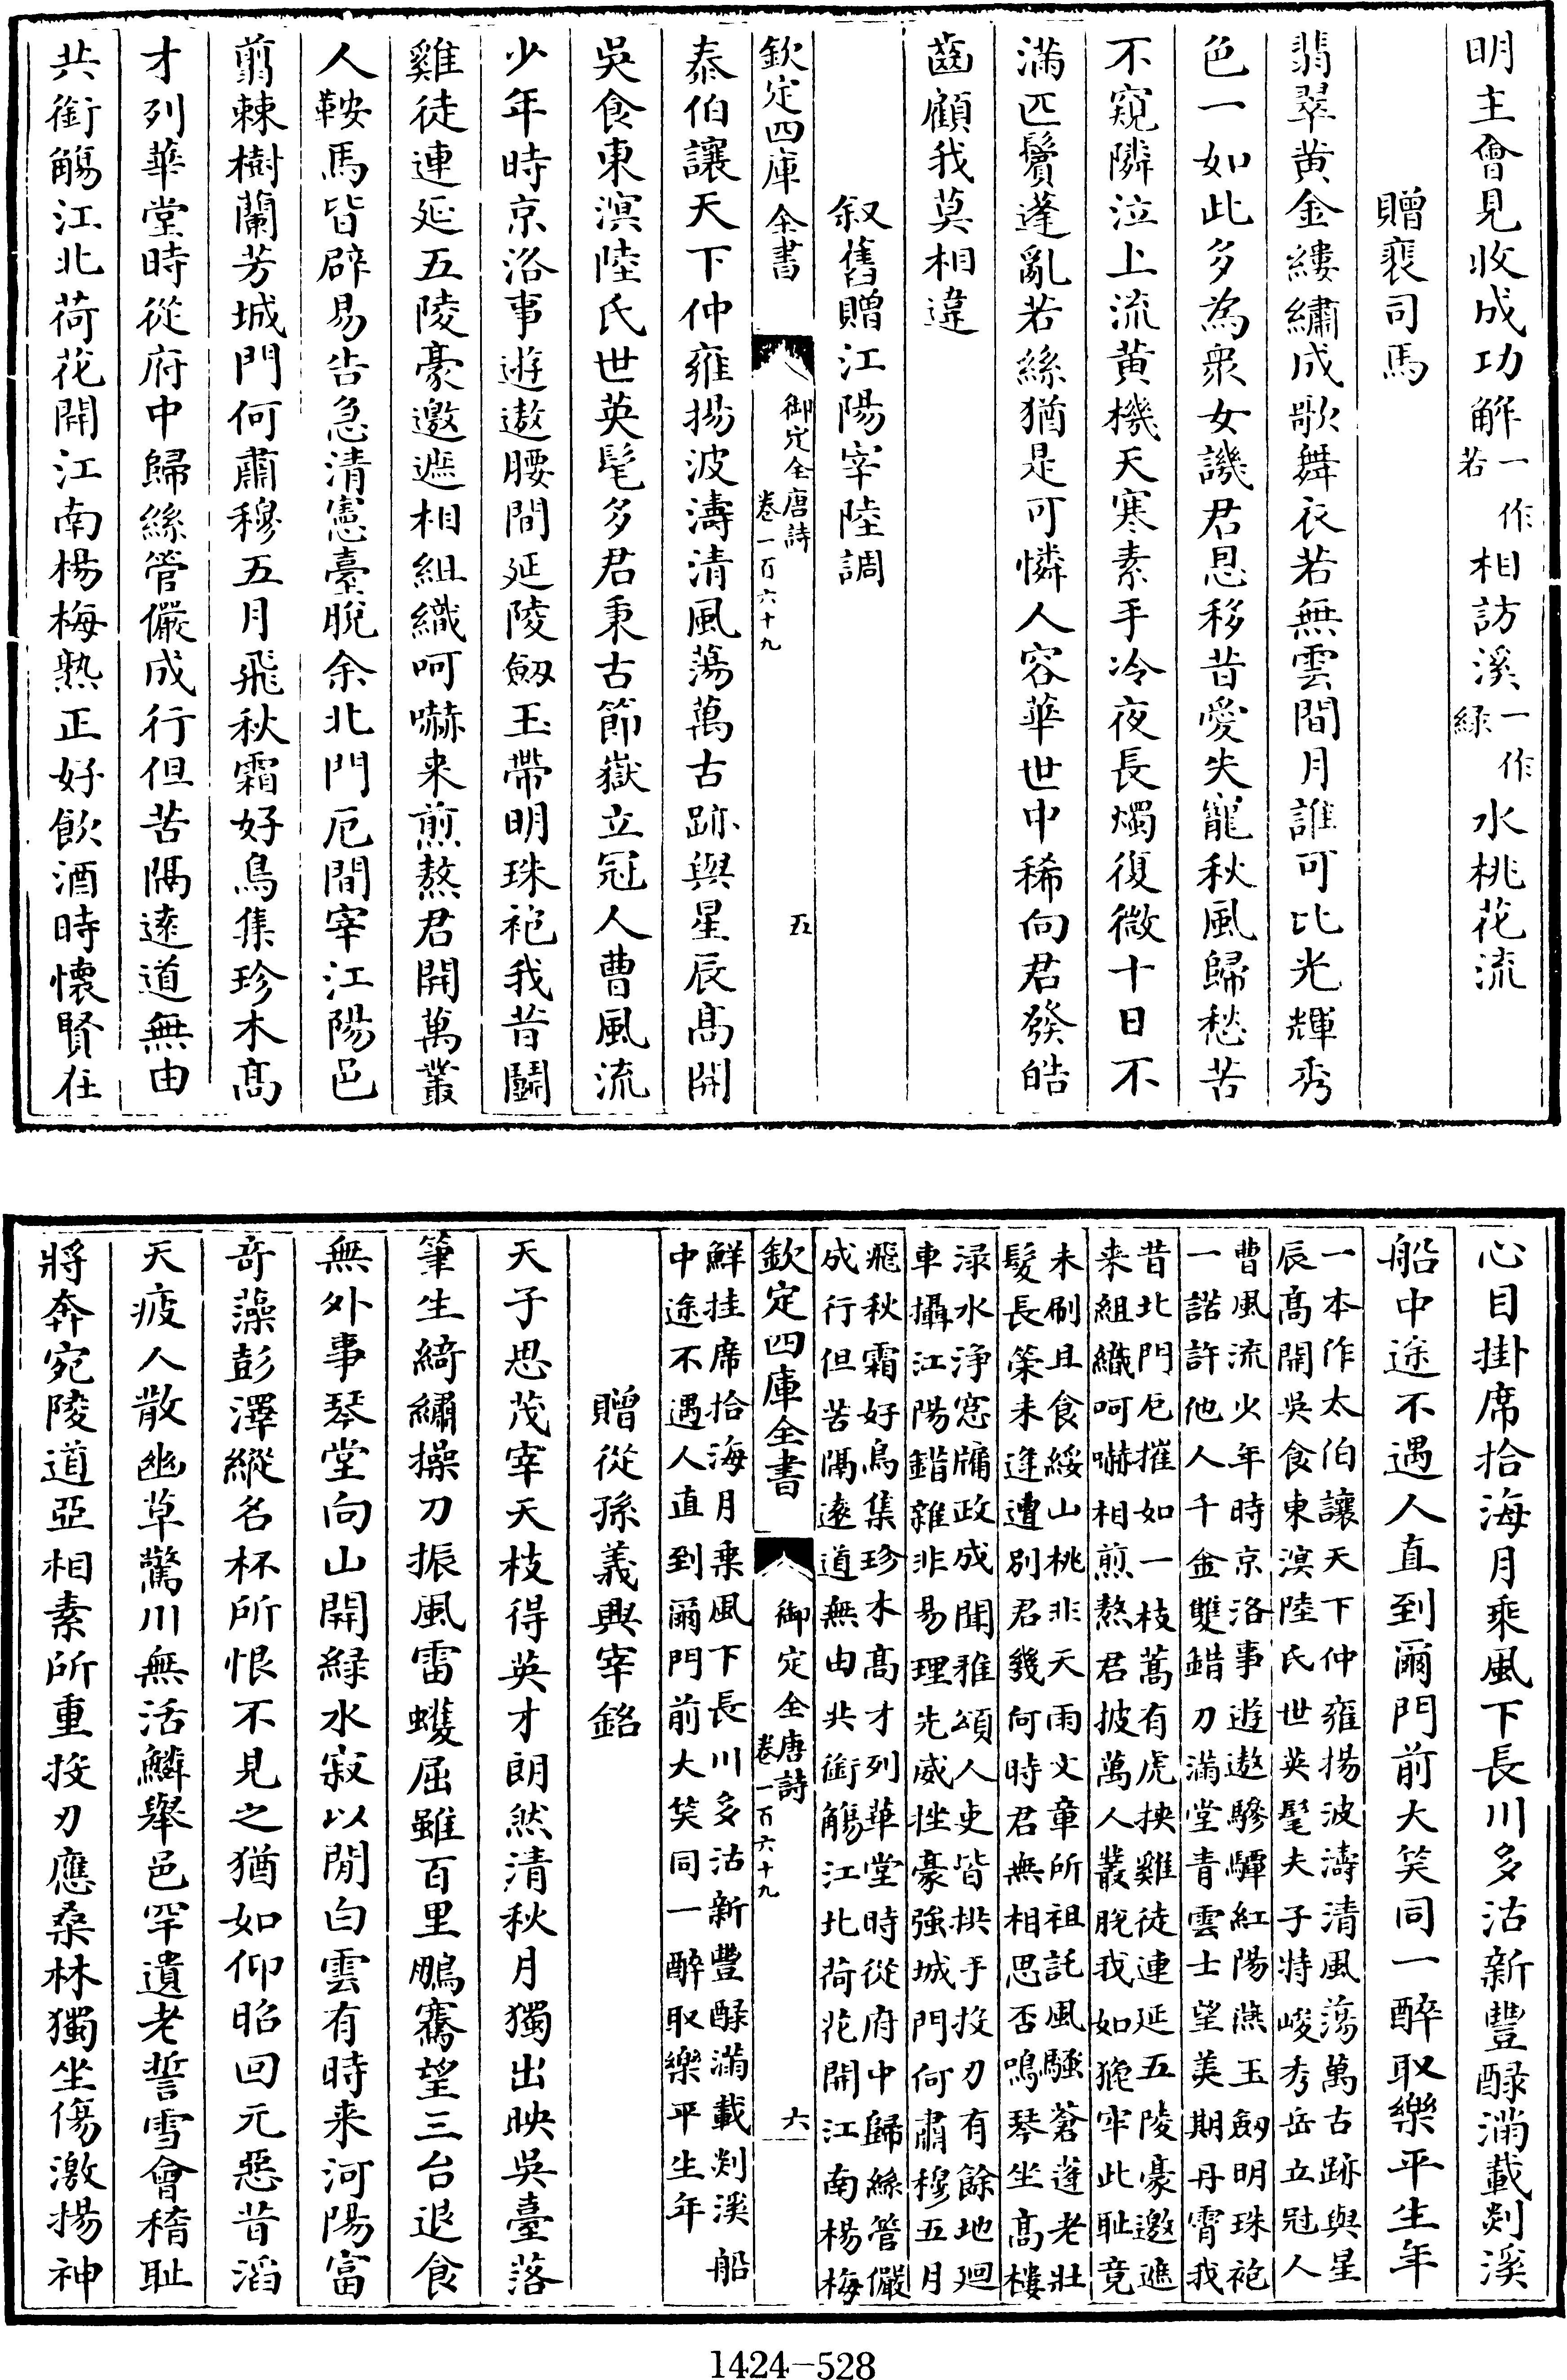 明主會見收成功解一作若相訪溪一作緑水桃花流
贈裴司馬
翡翠黄金縷繡成歌舞衣若無雲間月誰可比光輝秀
色一如此多為衆女譏君恩移昔愛失寵秋風歸愁苦
不窺隣泣上流黄機天寒素手冷夜長燭復微十日不
滿匹鬢蓬亂若絲猶是可憐人容華世中稀向君發皓
齒顧我莫相違
叙舊贈江陽宰陸調
欽定四庫全書
御定全唐詩
卷一百六十九
五
泰伯讓天下仲雍揚波濤清風蕩萬古跡與星辰髙開
吳食東溟陸氏世英髦多君秉古節嶽立冠人曹風流
少年時京洛事遊遨腰間延陵劔玉帶明珠袍我昔鬬
雞徒連延五陵豪邀遮相組織呵嚇来煎熬君開萬叢
人鞍馬皆辟易告急清憲臺脫余北門厄間宰江陽邑
翦棘樹蘭芳城門何肅穆五月飛秋霜好鳥集珍木髙
才列華堂時從府中歸絲管儼成行但苦隔逺道無由
共銜觴江北荷花開江南楊梅熟正好飲酒時懷賢在
心目掛席拾海月乘風下長川多沽新豐醁滿載剡溪
船中途不遇人直到爾門前大笑同一醉取樂平生年
一本作太伯讓天下仲雍揚波濤清風蕩萬古跡與星
辰髙開吳食東溟陸氏世英髦夫子特峻秀岳立冠人
曹風流少年時京洛事遊遨驂驔紅陽燕玉劔明珠袍
一諾許他人千金雙錯刀滿堂青雲士望美期丹霄我
昔北門厄摧如一枝蒿有虎挾雞徒連延五陵豪邀遮
来組織呵嚇相煎熬君披萬人叢脫我如貔牢此耻竟
未刷且食綏山桃非天雨文章所祖託風騷蒼蓬老壯
髮長策未逢遭别君幾何時君無相思否鳴琴坐髙樓
渌水浄窓牖政成聞雅頌人吏皆拱手投刃有餘地廻
車攝江陽錯雜非易理先威挫豪強城門何肅穆五月
飛秋霜好鳥集珍木髙才列華堂時從府中歸絲管儼
成行但苦隔逺道無由共銜觴江北荷花開江南楊梅
欽定四庫全書
御定全唐詩
卷一百六十九
六
鮮挂席拾海月乗風下長川多沽新豐醁滿載剡溪船
中途不遇人直到爾門前大笑同一醉取樂平生年
贈從孫義興宰銘
天子思茂宰天枝得英才朗然清秋月獨出映吳臺落
筆生綺繡操刀振風雷蠖屈雖百里鵬騫望三台退食
無外事琴堂向山開緑水寂以閒白雲有時来河陽富
竒藻彭澤縱名杯所恨不見之猶如仰昭回元惡昔滔
天疲人散幽草驚川無活鱗舉邑罕遺老誓雪會稽耻
將奔宛陵道亞相素所重投刃應桑林獨坐傷激揚神
1424-528